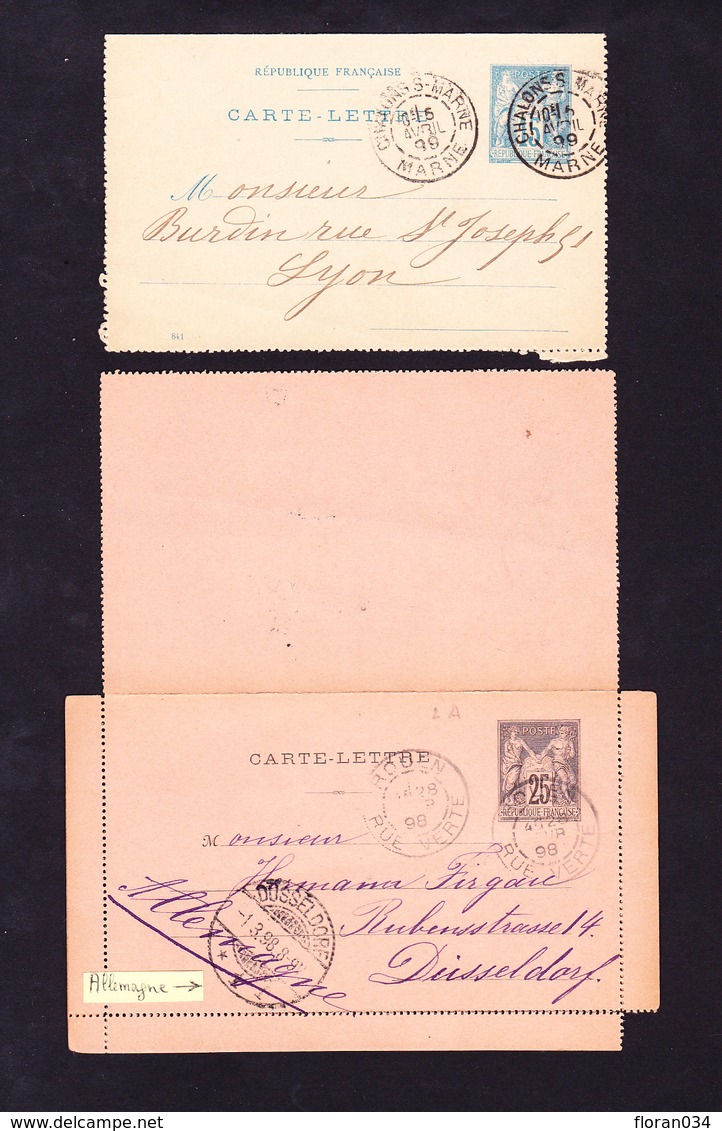 RÉPUBLIQUE FRANÇAISE
CARTE-LETTRE
POSTE
15
RÉPUBLIQUE FRANÇAISE
CHALONS-S-MARNE
15
AVRIL
99
MARNE
CHALONS-S-MARNE
15
AVRIL
99
MARNE
Monsieur
Burdin rue St Joseph 51
Lyon
841
CARTE-LETTRE
POSTE
25
ROUEN
28
98
RUE VERTE
98
RUE VERTE
Monsieur
Hermann Firgau
Rubensstrasse 14.
Düsseldorf.
Allemagne
DÜSSELDORF
-1.3.98.8-9
Allemagne →
delcampe.net
floran034